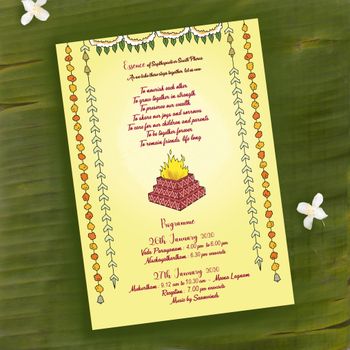 Essence of Sapthapadi or Sapth Pheras
As we take these steps together, let us vow
To nourish each other
To grow together in strength
To preserve our wealth
To share our joys and sorrows
To care for our children and parents
To be together forever
To remain friends life long
Programme
26th January 2020
Veda Parayanam - 4.00 pm to 6.00 pm
Nischayathartham - 6.30 pm onwards
27th January 2020
Muhurtham - 9.12 am to 10.30 am - Meena Lagnam
Reception - 7.00 pm onwards
Music by